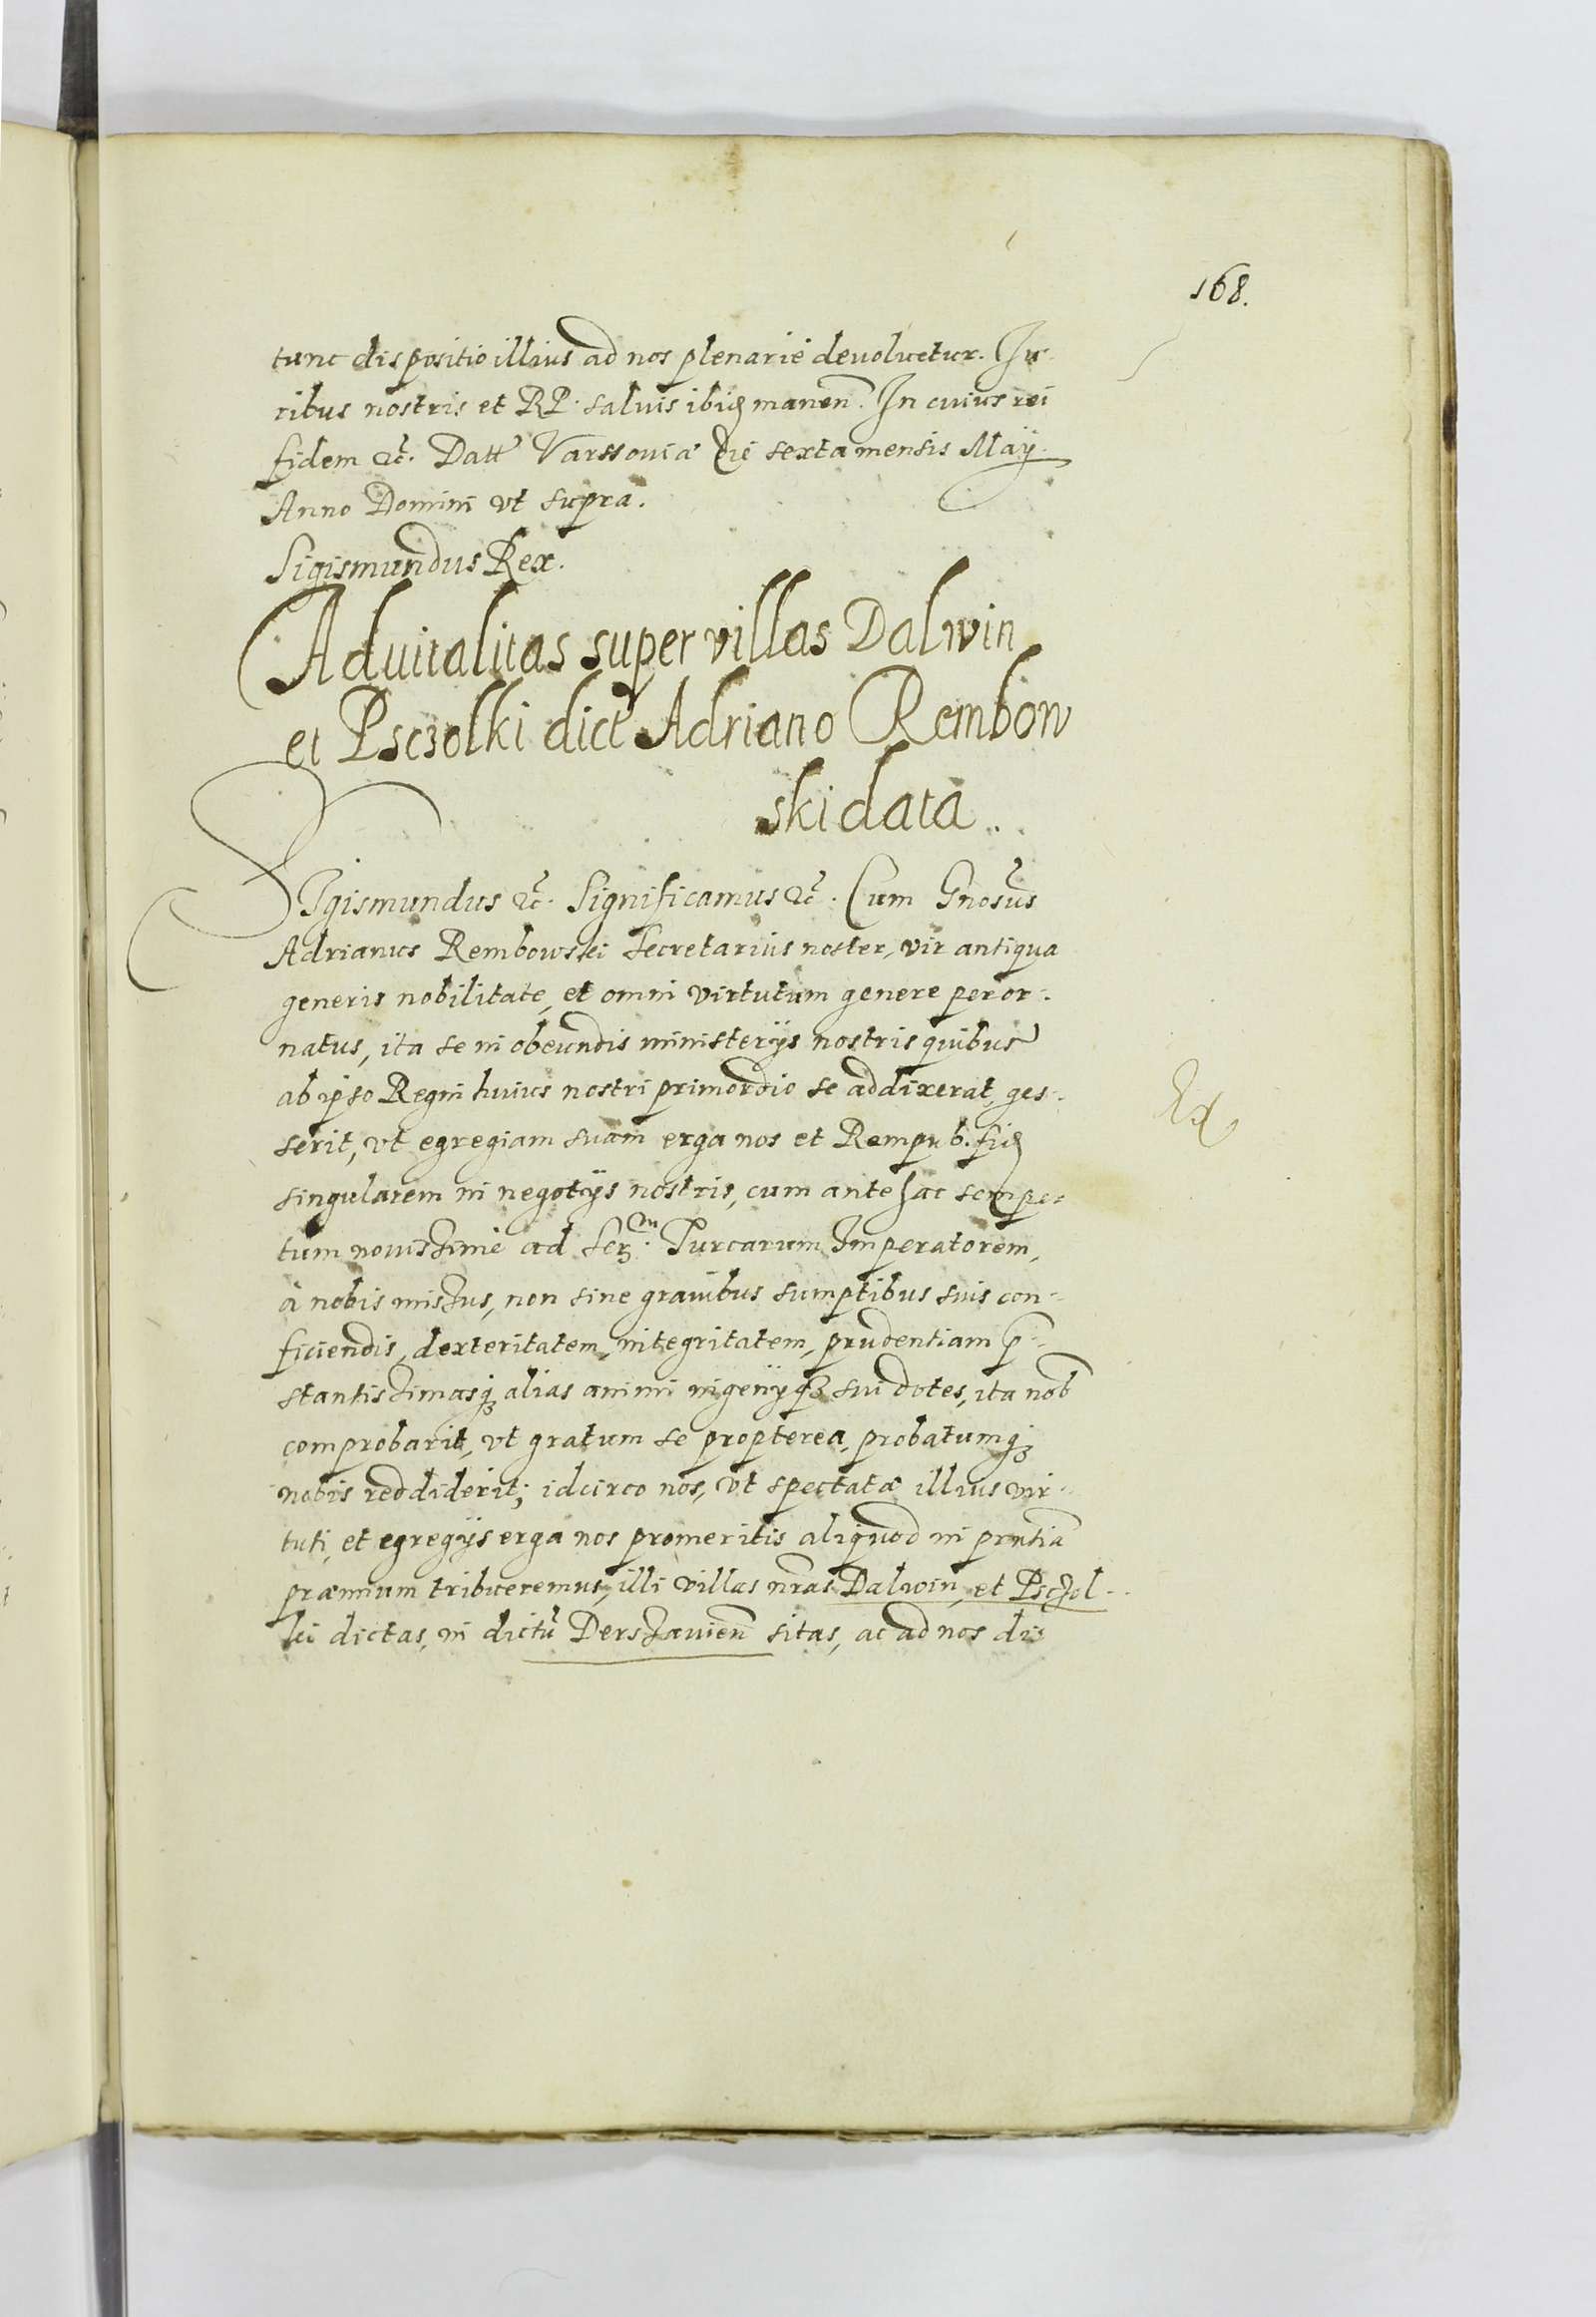 168.
tunc dispositio illius ad nos plenarie devoluetur. Ju-
ribus nostris et RP. salvis ibid manen. In cuius rei
fidem etc. Datt Varssoviæ die sexta mensis Maÿ
Anno Domini vt supra.
Sigismundus Rex.
Aduitalitas super villas Dalwin
et Psczolki dict Adriano Rembow
ski data.
SIgismundus etc. Significamus etc. Cum Gnosus
Adrianus Rembowski Secretarius noster, vir antiqua
generis nobilitate, et omni virtutum genere peror-
natus, ita se in obeundis ministerÿs nostris quibus
ab ipso Regni huius nostri primordio se addixerat, ges-
serit, vt egregiam suam erga nos et Rempub. fid
Ex
singularem in negotÿs nostris, cum antehac semper
tum novissime ad Ser.m Turcarum Imperatorem,
à nobis missus, non sine gravibus sumptibus suis con-
ficiendis, dexteritatem, integritatem, prudentiam p-
stantissimasq alias animi ingenÿq sui dotes, ita nob
comprobarit, vt gratum se propterea, probatumq
nobis reddiderit; idcirco nos, vt spectatæ illius vir-
tuti, et egregÿs erga nos promeritis aliquod in pntia
præmium tribueremus, illi villas nras Dalwin, et Psczol-
ki dictas, in dictu Derszavien sitas, ac ad nos dis